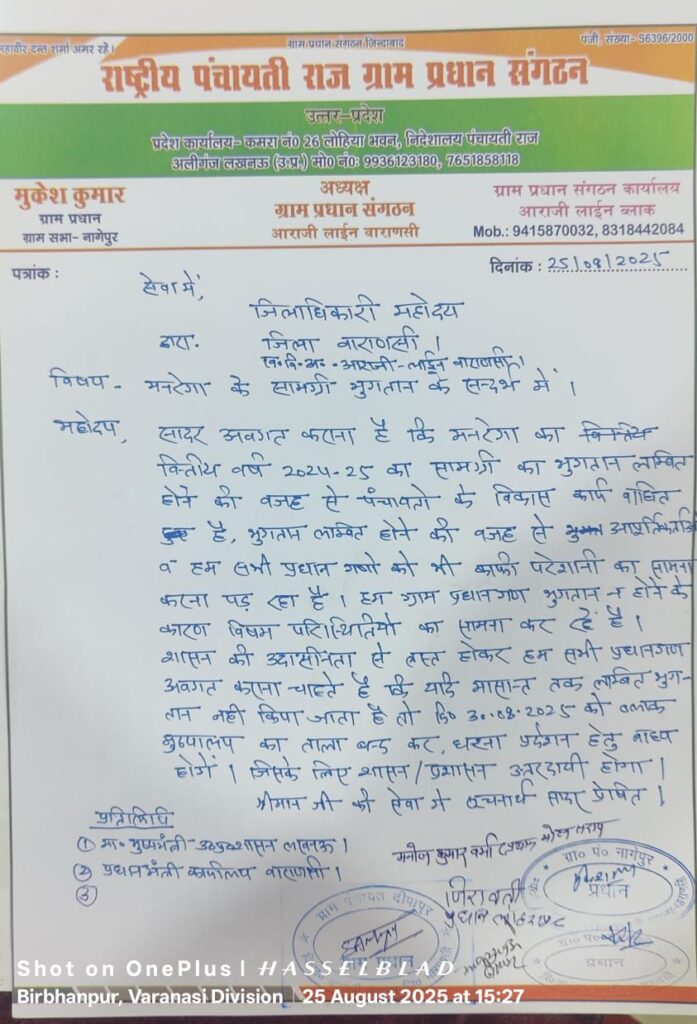 महावीर दत्त शर्मा अमर रहें।
ग्राम प्रधान संगठन जिन्दाबाद
पंजी. संख्या- S6396/2000
राष्ट्रीय पंचायती राज ग्राम प्रधान संगठन
उत्तर-प्रदेश
प्रदेश कार्यालय- कमरा नं0 26 लोहिया भवन, निदेशालय पंचायती राज
अलीगंज लखनऊ (उ.प्र.) मो0 नं0: 9936123180, 7651858118
मुकेश कुमार
ग्राम प्रधान
ग्राम सभा- नागेपुर
अध्यक्ष
ग्राम प्रधान संगठन
आराजी लाईन वाराणसी
ग्राम प्रधान संगठन कार्यालय
आराजी लाईन ब्लाक
Mob.: 9415870032, 8318442084
पत्रांक :
दिनांक : 25/08/2025
सेवा में,
जिलाधिकारी महोदय
द्वारा. जिला वाराणसी।
ख.वि.अ. आराजी-लाईन वाराणसी।
विषय - मनरेगा के सामग्री भुगतान के सन्दर्भ में।
महोदय, सादर अवगत कराना है कि मनरेगा का
वित्तीय वर्ष 2024-25 का सामग्री का भुगतान लम्बित
होने की वजह से पंचायतो के विकास कार्य बाधित
है, भुगतान लम्बित होने की वजह से
व हम सभी प्रधान गणों को भी काफी परेशानी का सामना
करना पड़ रहा है। हम ग्राम प्रधानगण भुगतान न होने के
कारण विषम परिस्थितियो का सामना कर रहें है।
शासन की उदासीनता से त्रस्त होकर हम सभी प्रधानगण
अवगत कराना चाहते है कि यदि मासान्त तक लम्बित भुग-
तान नही किया जाता है तो दि0 30.08.2025 को ब्लाक
मुख्यालय का ताला बन्द कर, धरना प्रदर्शन हेतु बाध्य
होगें। जिसके लिए शासन/प्रशासन उत्तरदायी होगा।
श्रीमान जी की सेवा में सूचनार्थ सादर प्रेषित।
प्रतिलिपि
① मा० मुख्यमंत्री लखनऊ।
② प्रधानमंत्री कार्यालय वाराणसी।
③
मनोज कुमार वर्मा
ग्रा० पं० नागेपुर
प्रधान
ग्राम पंचायत दीपापुर
प्रधान
ग्रा० पं०
प्रधान
Shot on OnePlus | HASSELBLAD
Birbhanpur, Varanasi Division 25 August 2025 at 15:27